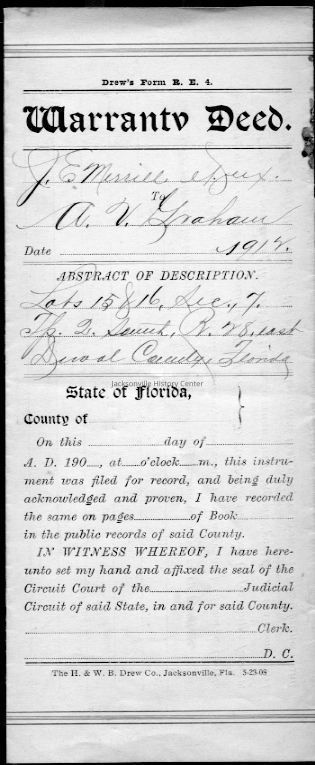 Drew's Form R. E. 4.
Warranty Deed.
J. E. Merrill et ux.
To
A. V. Graham
Date 1917.
ABSTRACT OF DESCRIPTION.
Lots 15 & 16, Sec., 7.
Tp. 2. South, R. 28, east
Duval County, Florida
Jacksonville History Center
State of Florida,
County of
On this day of
A. D. 190 , at o'clock m., this instru-
ment was filed for record, and being duly
acknowledged and proven, I have recorded
the same on pages of Book
in the public records of said County.
IN WITNESS WHEREOF, I have here-
unto set my hand and affixed the seal of the
Circuit Court of the Judicial
Circuit of said State, in and for said County.
Clerk.
D. C.
The H. & W. B. Drew Co., Jacksonville, Fla. 5-23-08